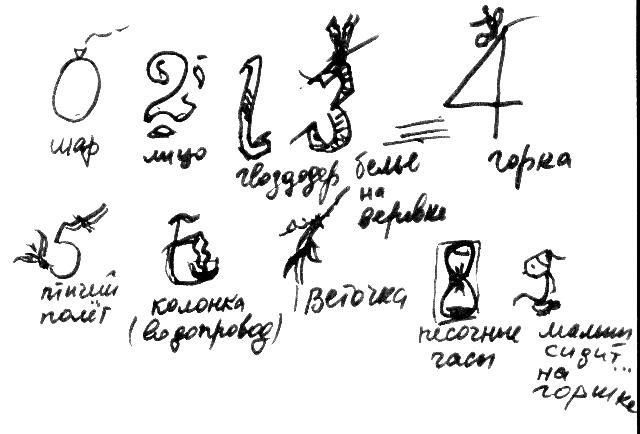 0 2 1 3 4
шар
лицо
гвоздодер
белье
на
веревке
горка
5 6 7 8 9
птичий
полёт
колонка
(водопровод)
веточка
песочные
часы
малыш
сидит...
на
горшке